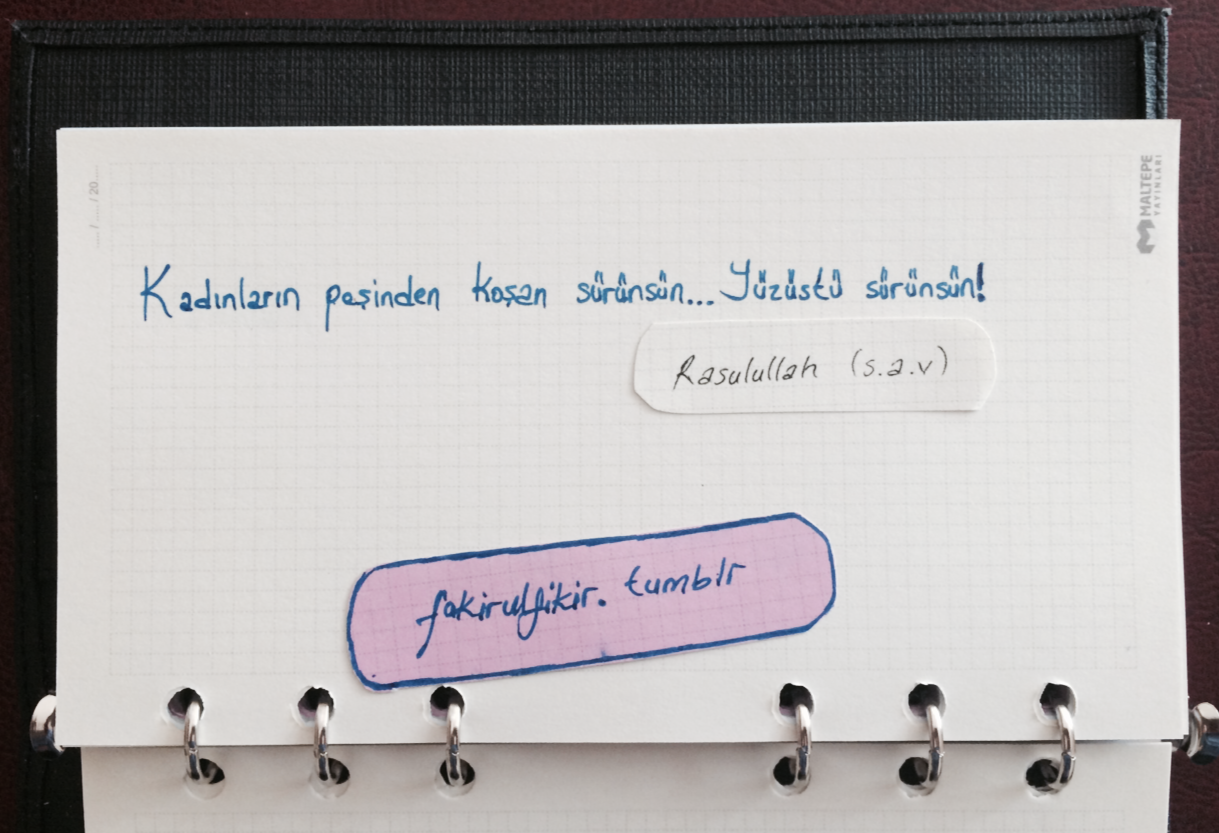 ..../..../20....
MALTEPE
YAYINLARI
Kadınların peşinden koşan sürünsün... Yüzüstü sürünsün!
Rasulullah (s.a.v)
fakirulfikir. tumblr